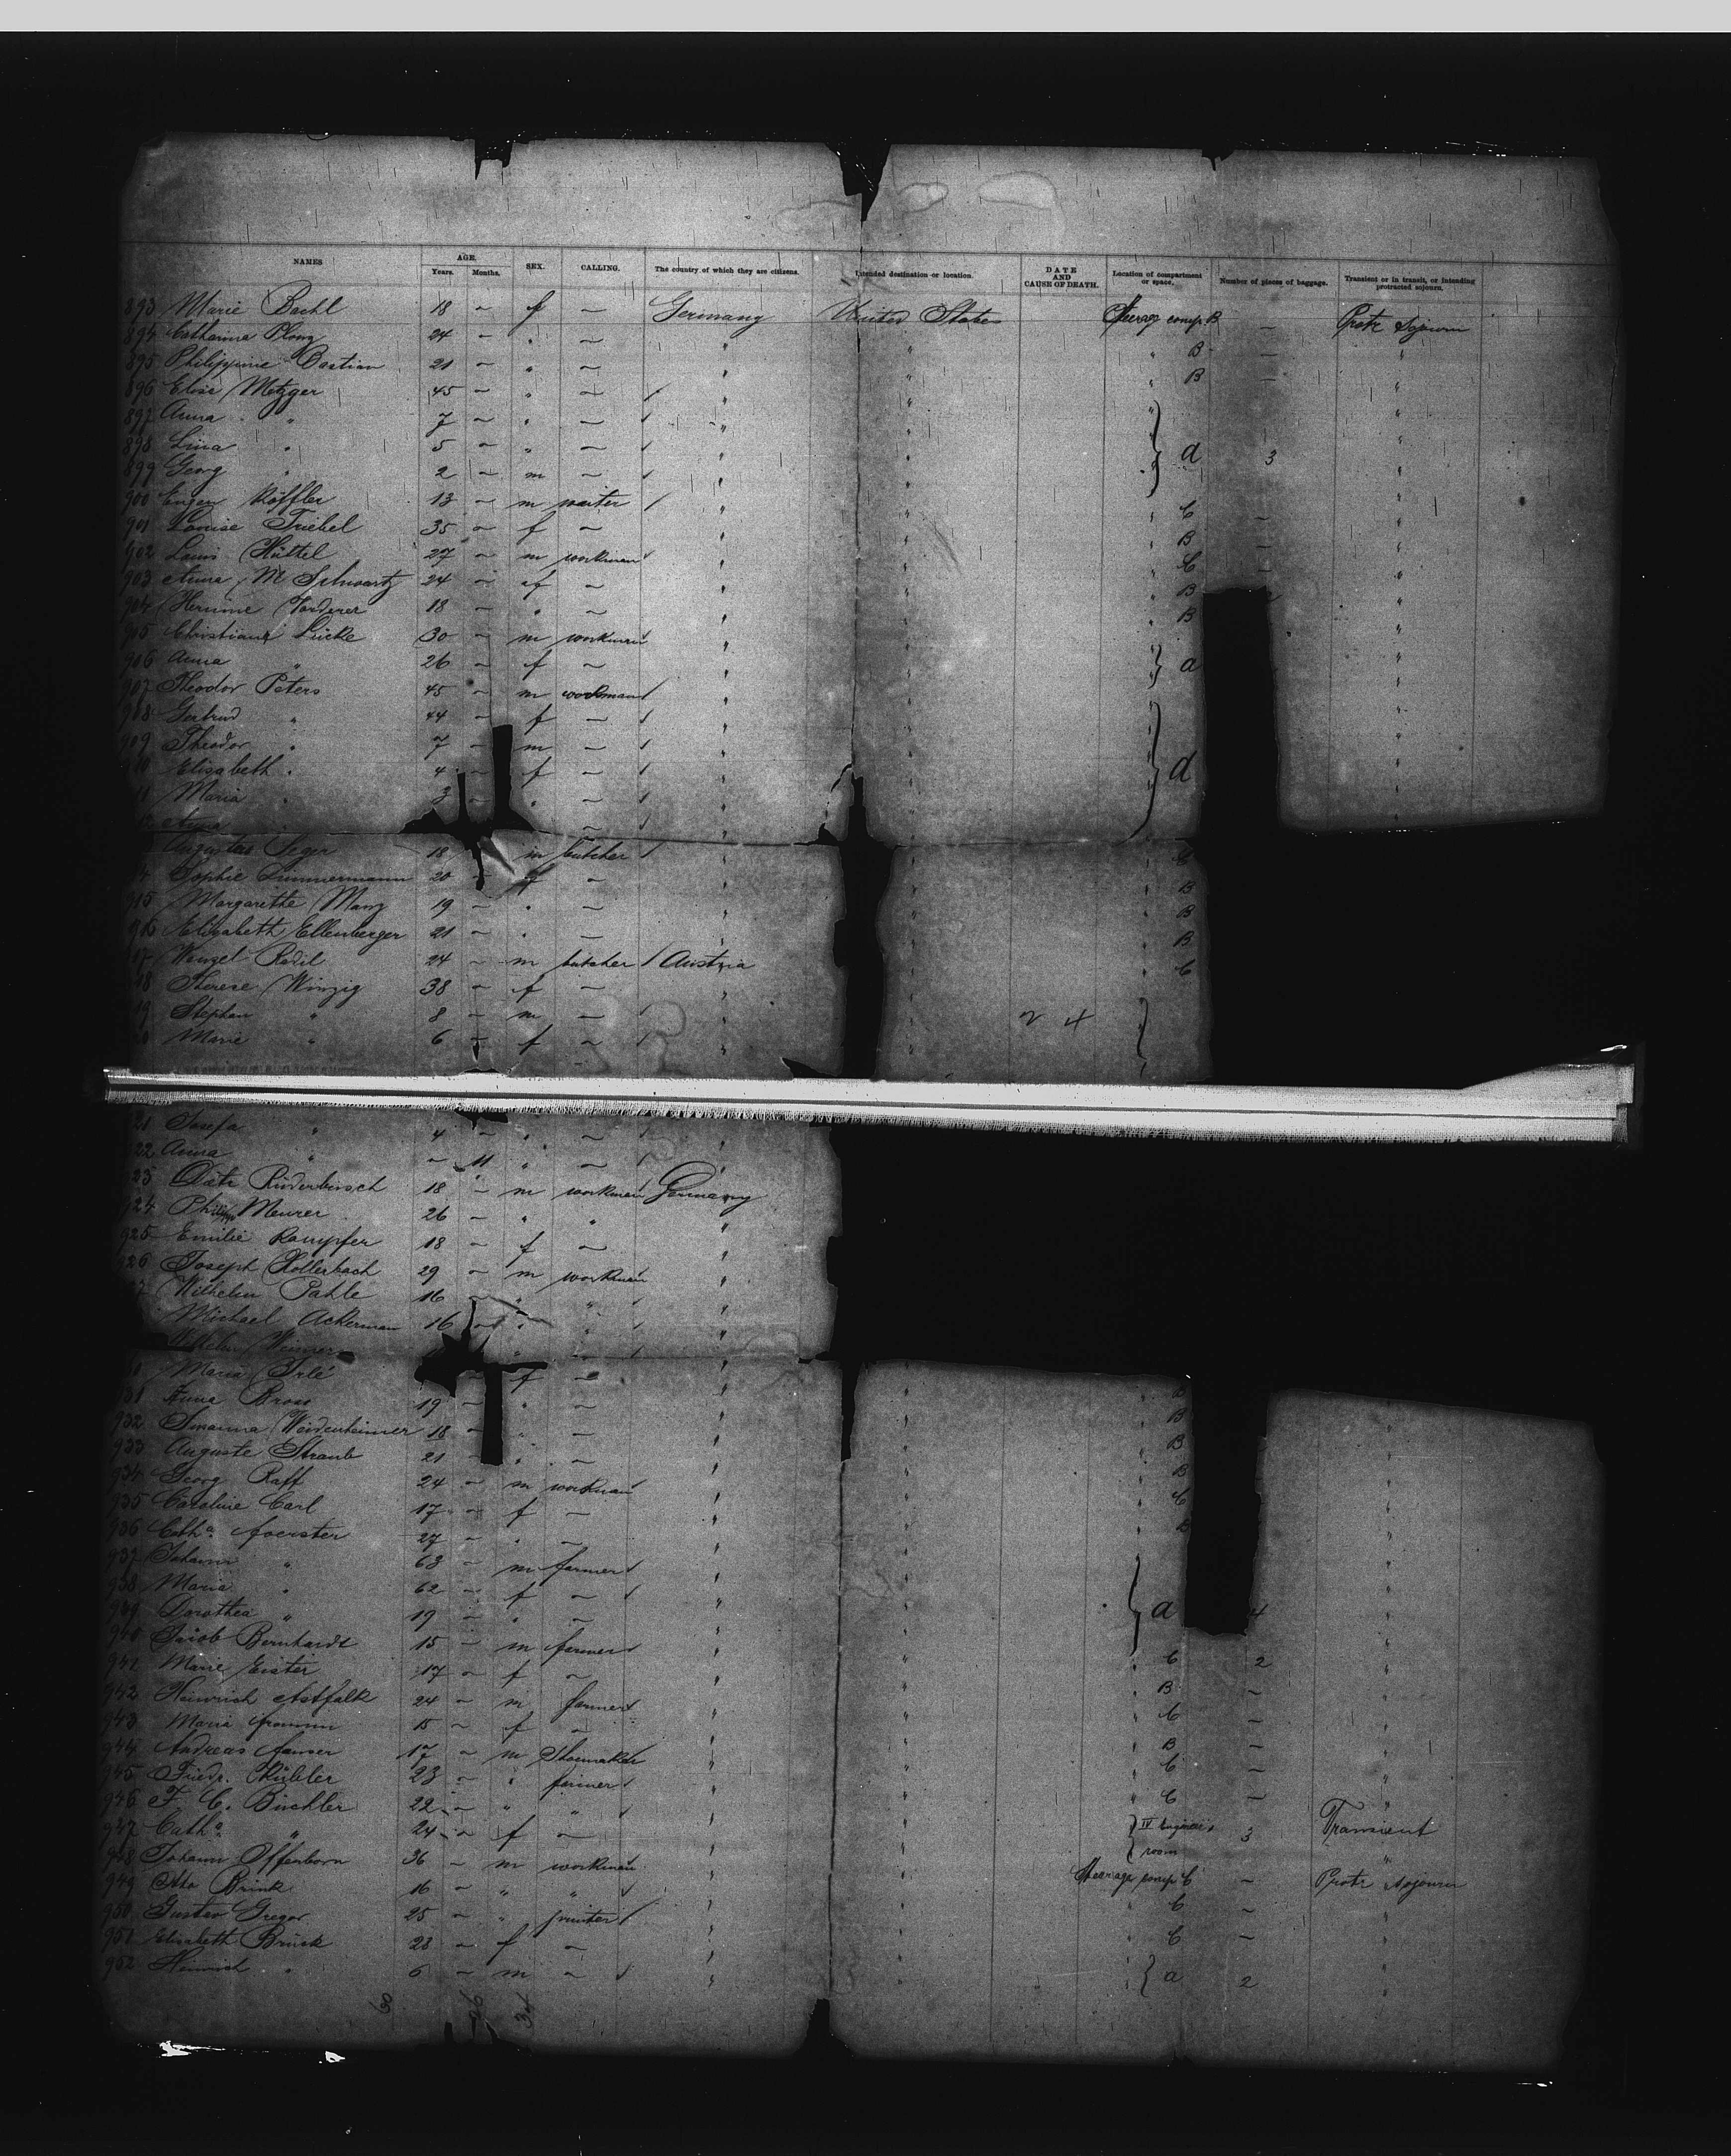 NAMES AGE. Years. Months. SEX. CALLING. The country of which they are citizens. Intended destination or location. DATE AND CAUSE OF DEATH. Location of compartment or space. Number of pieces of baggage. Transient or in transit, or intending protracted sojourn.
893 Marie Bachl 18 ~ f ~ Germany United States Steerage comp. B ~ Protr Sojourn
894 Catharina 24 ~ " ~ " " " B ~ "
895 Philippine Bastian 21 ~ " ~ " " " B ~ "
896 Elise Metzger 45 ~ " ~ / " " " "
897 Anna " 7 ~ " ~ / " " "
898 Lina " 5 ~ " ~ / " " d 3 "
899 Georg " 2 ~ m ~ / " " "
900 Eugen Köffler 13 ~ m waiter / " " " C ~ "
901 Louise Triebel 35 ~ f ~ " " " B ~ "
902 Louis Hüttel 27 ~ m workman / " " " C ~ "
903 Anna M Schwartz 24 ~ f ~ " " " B "
904 Hermine 18 ~ " ~ " " " B "
905 Christian Lücke 30 ~ m workman / " " "
906 Anna " 26 ~ f ~ " " a "
907 Theodor Peters 45 ~ m workman / " " "
908 Gertrud " 44 ~ f ~ / " " "
909 Theodor " 7 ~ m ~ / " " "
10 Elisabeth " 4 ~ f ~ / " " d "
11 Maria " 3 ~ " ~ / " " "
12 Anna " ~ / " " "
Augustus Seger 18 m butcher / " C
4 Sophie Zimmermann 20 ~ f ~ " " " B
915 Margarethe Manz 19 ~ " ~ " " " B
916 Elisabeth Ellenberger 21 ~ " ~ " " " B
917 Wenzel Redil 24 ~ m butcher / Austria " " C
918 Therese Winzig 38 ~ f ~ " "
19 Stephan " 8 ~ m ~ / " " 2 4
20 Marie " 6 ~ f ~ / " "
21 Josefa " 4 ~ " ~ / "
22 Anna " ~ 11 " ~ / "
23 18 ~ m workman / Germany
924 Philipp Meurer 26 ~ " " "
925 Emilie Kampfer 18 ~ f ~ "
926 Joseph Hollerbach 29 ~ m workman "
7 Wilhelm Pahle 16 ~ " " / "
Michael Ackerman 16 ~ " " / "
Wilhelm Weimer " "
Maria Irle f ~ " " " B "
931 Anna Bross 19 ~ " ~ " " " B "
932 Susanna Weidenheimer 18 ~ " ~ " " " B "
933 Auguste Straub 21 ~ " ~ " " " B "
934 Georg Raff 24 ~ m workman / " " " C "
935 Caroline Carl 17 ~ f ~ " " " B "
936 Catha. Foerster 27 ~ " ~ " " "
937 Johann " 63 ~ m farmer / " " "
938 Maria " 62 ~ f ~ / " " "
939 Dorothea " 19 ~ " ~ " " a 4 "
940 Jacob Bernhardt 15 ~ m farmer / " " " C 2 "
941 Marie 17 ~ f ~ " " " B ~ "
942 Heinrich Astfalk 24 ~ m farmer / " " " C ~ "
943 Maria Fromm 15 ~ f ~ " " " B ~ "
944 Andreas 17 ~ m Shoemaker / " " " C ~ "
945 Friedr. Kübler 23 ~ " farmer / " " " C ~ "
946 F. C. Büchler 22 ~ " " / " " IV Engineers room 3 Transient
947 Catha. " 24 ~ f ~ " " "
948 Johann Offenborn 36 ~ m workman / " " Steerage comp C ~ Protr sojourn
949 Otto Brink 16 ~ " " / " " " C ~ "
950 Gustav Gregor 25 ~ " printer / " " " C ~ "
951 Elisabeth Brück 28 ~ f ~ " " "
952 Heinrich " 6 ~ m ~ / " " " a 2 "
60 26 34